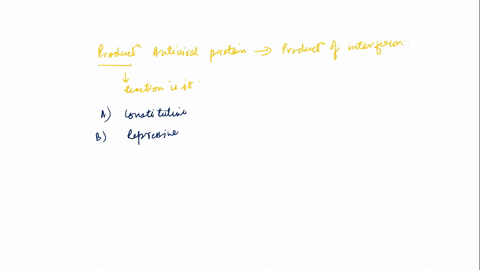 Productⁿ Antiviral protein → Productⁿ of interferon
↓
reaction is it
A) Constitutive
B) Repressive